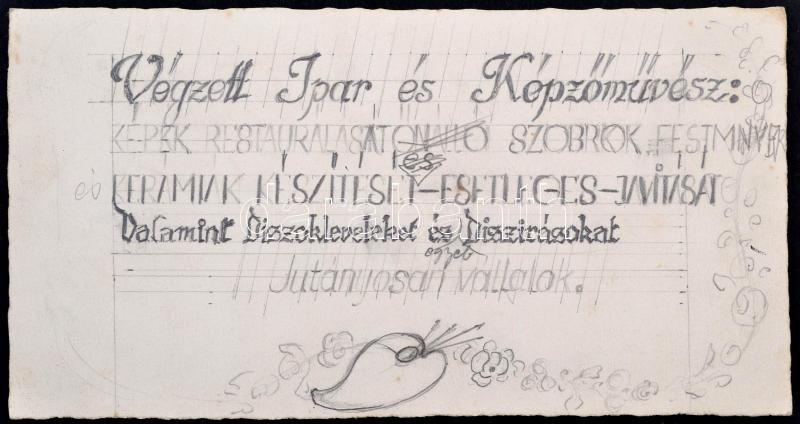 Végzett Ipar és Képzőművész:
KÉPEK RESTAURÁLÁSÁT ÖNÁLLÓ SZOBROK FESTMNYEK
és
és KERÁMIÁK KÉSZÍTÉSÉT-ESETLEGES-JAVÍTÁSÁT
Valamint Diszokleveleket és Diszirásokat
egyéb
Jutányosan vállalok.